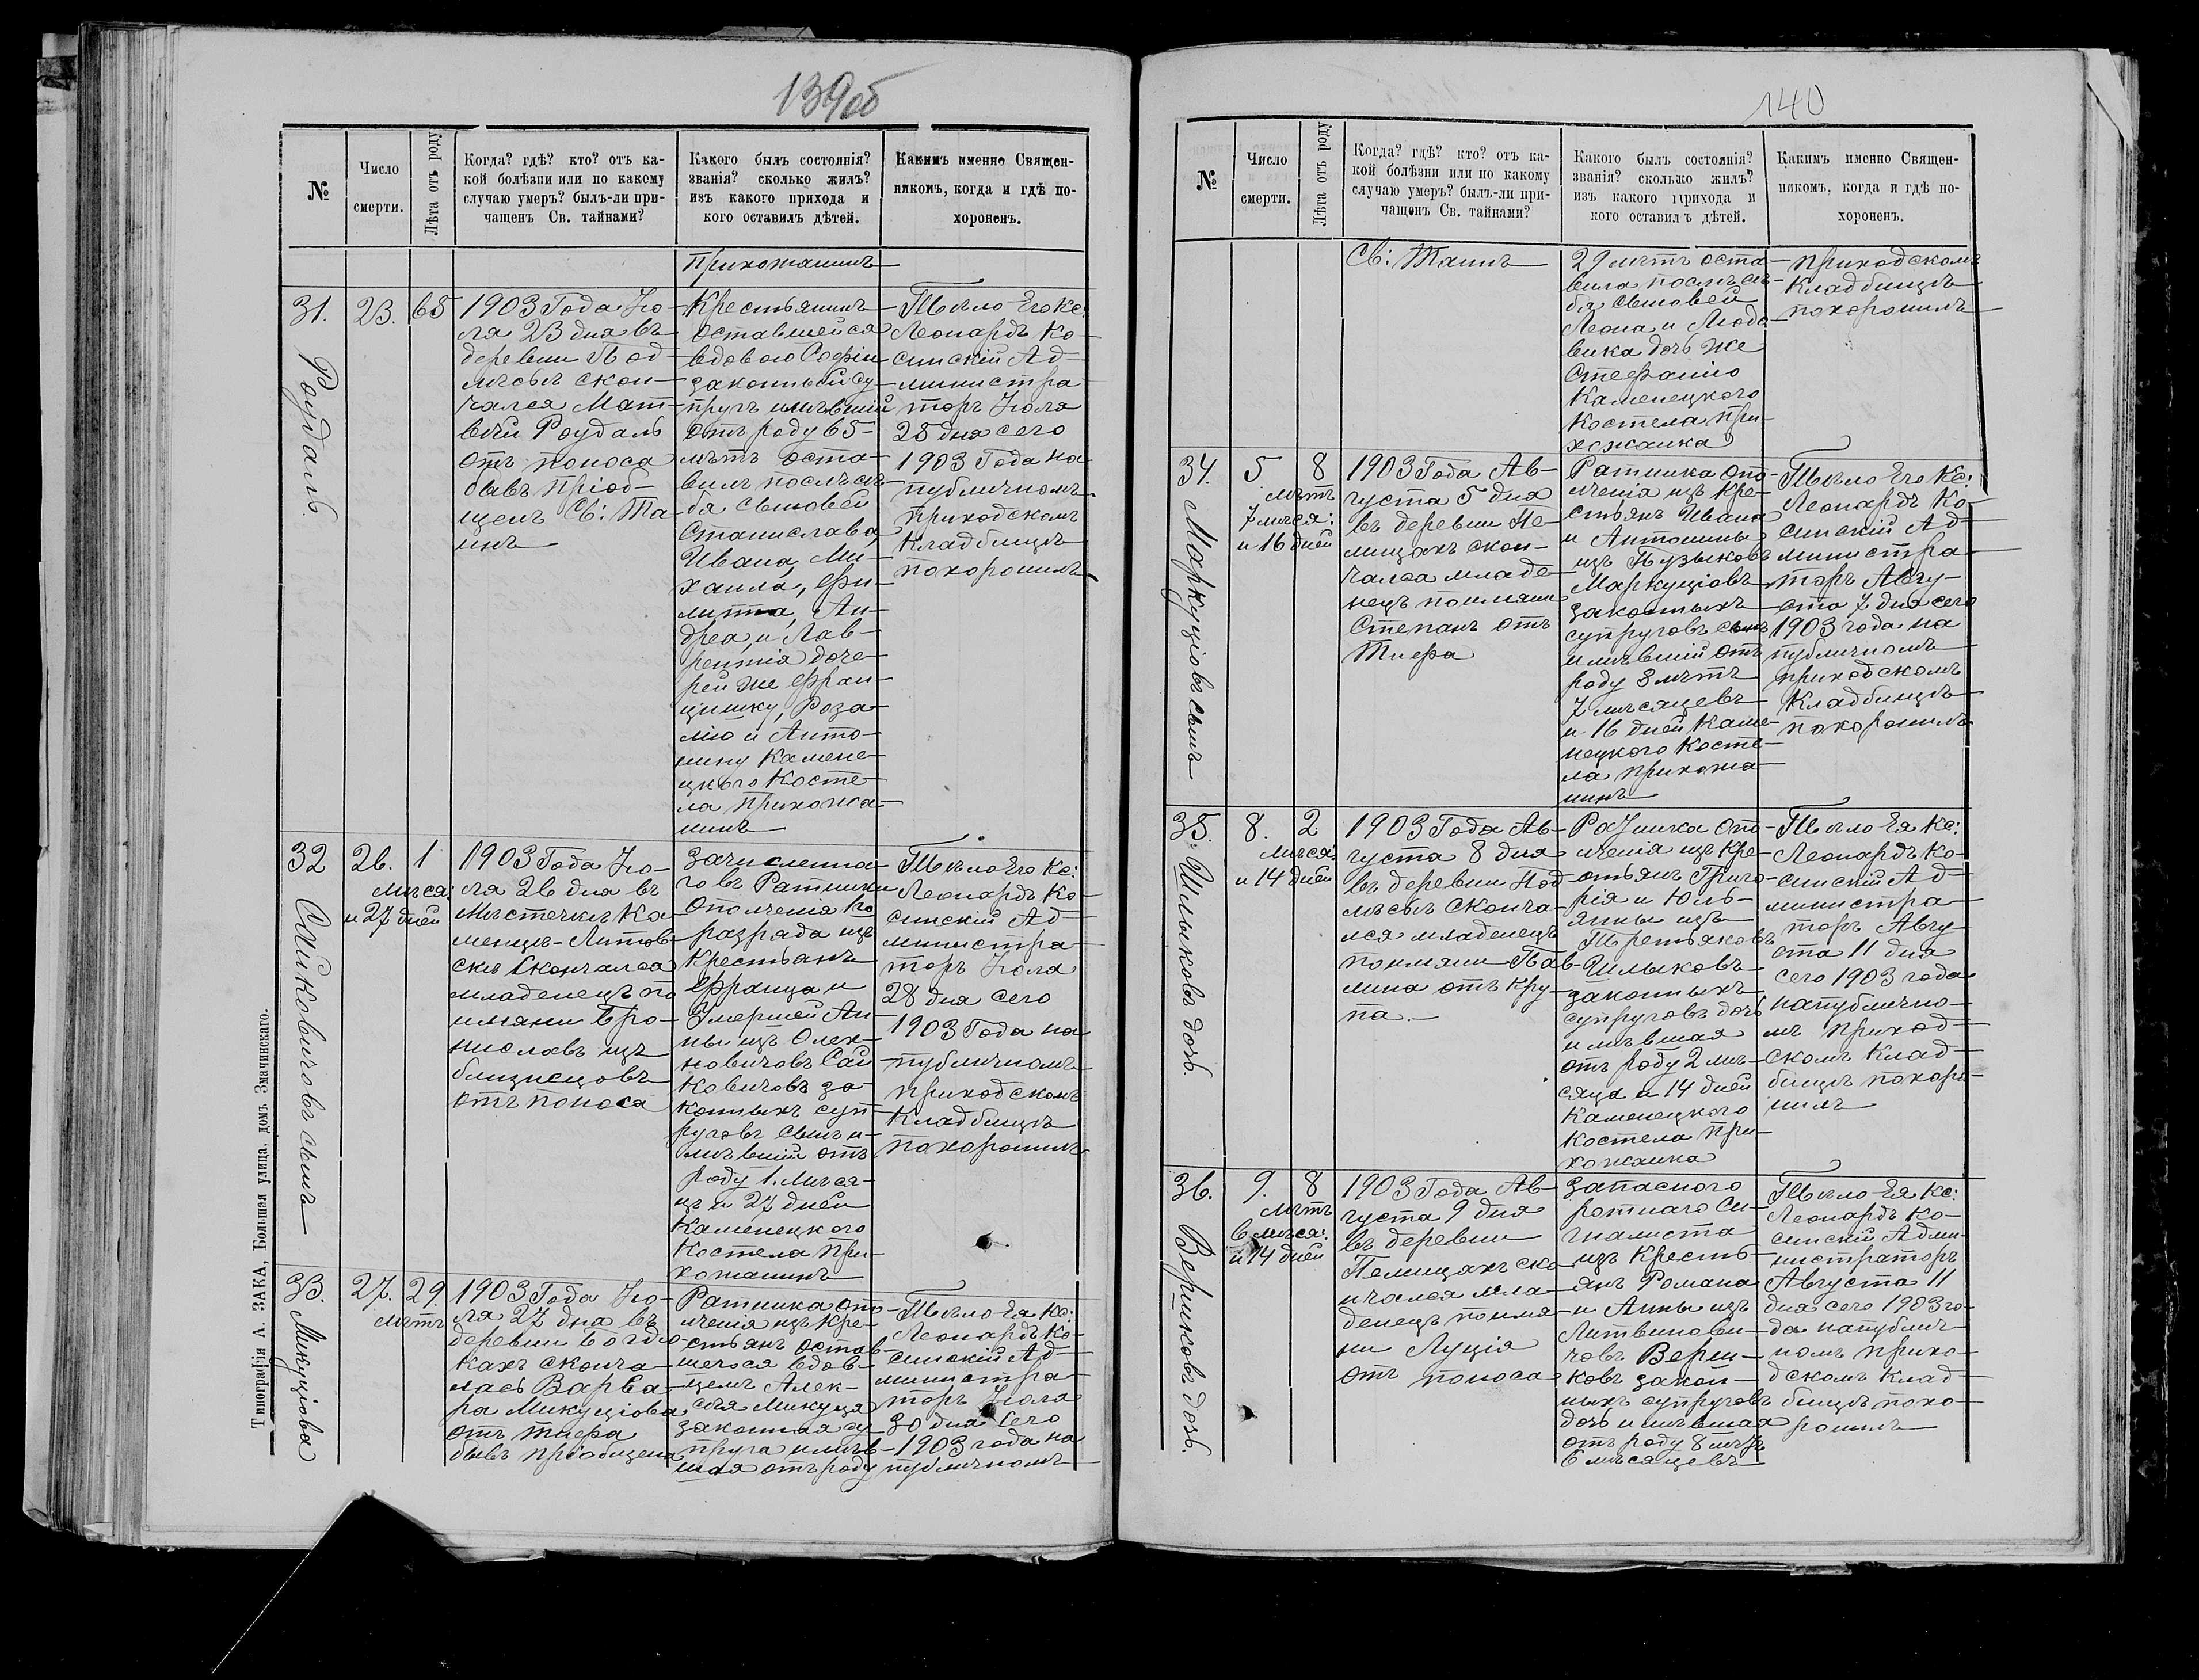 139об
№
Число
смерти.
Лѣта отъ роду
Когда? гдѣ? кто? отъ ка-
кой болѣзни или по какому
случаю умеръ? былъ-ли при-
чащенъ Св. тайнами?
Какого былъ состоянія?
званія? сколько жилъ?
изъ какого прихода и
кого оставилъ дѣтей.
Какимъ именно Священ-
никомъ, когда и гдѣ по-
хороненъ.
Прихожанинъ
31.
Роудаль.
23.
65
1903 Года Ію-
ля 23 дня въ
деревни Под-
лѣсьѣ скон-
чался Мат-
вѣй Роудаль
отъ поноса
бывъ пріоб-
щенъ Св: Та
инъ
Крестьянинъ
оставшейся
вдовою Софіи
законный су-
пругъ имѣвшій
отъ роду 65
лѣтъ оста-
вилъ послѣ се-
бя сыновей
Станислава,
Ивана, Ми-
хаила, Фи-
липпа, Ан-
дрея, и Лав-
рентія доче-
рей же Фран-
цишку, Роза-
лію и Анто-
нину Камене-
цкого Косте-
ла Прихожа-
нинъ
Тѣло Его Кс:
Леонардъ Ко-
синскій Ад-
министра
торъ Іюля
25 дня сего
1903 Года на
публичномъ
Приходскомъ
Кладбищѣ
похоронилъ
32
Сайковичовъ сынъ
26.
1
мѣся:
и 27 дней
1903 Года Ію-
ля 26 дня въ
Мѣстечкѣ Ка-
менцѣ-Литов-
скѣ скончался
младенецъ по
имяни Бро-
ниславъ изъ
близнецовъ
отъ поноса
зачисленна-
го въ Ратники
Ополченія Iго
разряда изъ
Крестьянъ
Франца и
Умершей Ан-
ны изъ Олех-
новичовъ Сай
ковичовъ за-
конныхъ суп-
руговъ сынъ и-
мѣвшій отъ
Роду 1. Мѣся-
цъ и 27 дней
Каменецкого
Костела При-
хожанинъ
Тѣло Его Кс:
Леонардъ Ко-
синскій Ад-
министра-
торъ Іюля
28 дня сего
1903 Года на
публичномъ
приходскомъ
Кладбищѣ
похоронилъ
33.
Микуціова
27.
29
лѣтъ
1903 Года Ію-
ля 27 дня въ
деревни Богдю-
кахъ сконча-
лась Варва-
ра Микуціова
отъ тифа
бывъ пріобщена
Ратника опо-
лченія изъ Кре-
стьянъ остав-
шегося вдов-
цемъ Алек-
сѣя Микуця
законная су
пруга имѣв-
шая отъ роду
Тѣло Ея Кс:
Леонардъ Ко-
синскій Ад-
министра-
торъ Іюля
30 дня сего
1903 года на
публичномъ
Типографія А. ЗАКА, Большая улица, домъ Змачинскаго.
140
№
Число
смерти.
Лѣта отъ роду
Когда? гдѣ? кто? отъ ка-
кой болѣзни или по какому
случаю умеръ? былъ-ли при-
чащенъ Св. тайнами?
Какого былъ состоянія?
званія? сколько жилъ?
изъ какого прихода и
кого оставилъ дѣтей.
Какимъ именно Священ-
никомъ, когда и гдѣ по-
хороненъ.
Св: Таинъ
29 лѣтъ оста-
вила послѣ се-
бя сыновей
Леона и Людо-
вика дочь же
Стефанію
Каменецкого
Костела при-
хожанка
приходскомъ
Кладбищѣ
похоронилъ
34.
Маркуціовъ сынъ
5.
8
лѣтъ
7 мѣся:
и 16 дней
1903 Года Ав-
густа 5 дня
въ деревни Пе-
лищахъ скон-
чался младе-
нецъ поимяни
Степанъ отъ
Тифа
Ратника опо-
лченія изъ Кре-
стьянъ Ивана
и Антонины
изъ Пузыковъ
Маркуціовъ
законныхъ
супруговъ сынъ
имѣвшій отъ
роду 8 лѣтъ
7 мѣсяцевъ
и 16 дней Каме-
нецкого Косте-
ла прихожа-
нинъ
Тѣло Его Кс:
Леонардъ Ко-
синскій Ад-
министра-
торъ Авгу-
ста 7 дня сего
1903 года на
публичномъ
приходскомъ
Кладбищѣ
похоронилъ
35.
Шлыковъ дочь.
8.
2
мѣся:
и 14 дней
1903 Года Ав-
густа 8 дня
въ деревни Под
лѣсьѣ сконча-
лся младенецъ
поимяни Пав-
лина отъ Кру-
па.
Ратника опо-
лченія изъ Кре-
стьянъ Григо-
рія и Юль-
янны изъ
Третьяковъ
Шлыковъ
законныхъ
супруговъ дочь
имѣвшая
отъ роду 2 мѣ-
сяца и 14 дней
Каменецкого
Костела При-
хожанка
Тѣло Ея Кс:
Леонардъ Ко-
синскій Ад-
министра-
торъ Авгу-
ста 11 дня
сего 1903 года
на публично-
мъ приход-
скомъ Клад-
бищѣ похоро-
нилъ
36.
Вершковъ дочь.
9.
8
лѣтъ
6 мѣся:
и 14 дней
1903 Года Ав-
густа 9 дня
въ деревни
Пелищахъ ско-
нчался мла-
денецъ поимя-
ни Луція
отъ поноса
Запасного
ротнаго Си-
гналиста
изъ Кресть-
янъ Романа
и Анны изъ
Литвинови-
човъ Верш-
ковъ закон-
ныхъ супруговъ
дочь имѣвшая
отъ роду 8 лѣтъ
6 мѣсяцевъ
Тѣло Ея Кс:
Леонардъ Ко-
синскій Адми-
нистраторъ
Августа 11
дня сего 1903 го-
да на публич-
номъ прихо-
дскомъ Клад-
бищѣ похо-
ронилъ